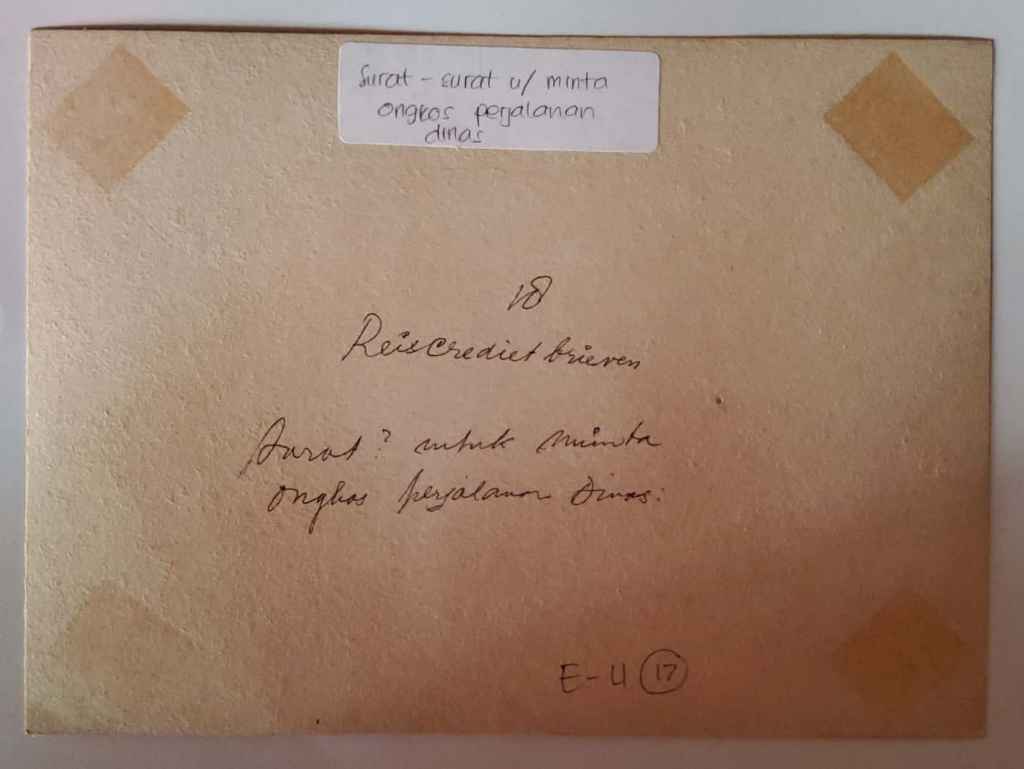 Surat - surat u/ minta
ongkos perjalanan
dinas
18
Reiscrediet brieven
Surat? untuk minta
ongkos perjalanan Dinas.
E-4 17